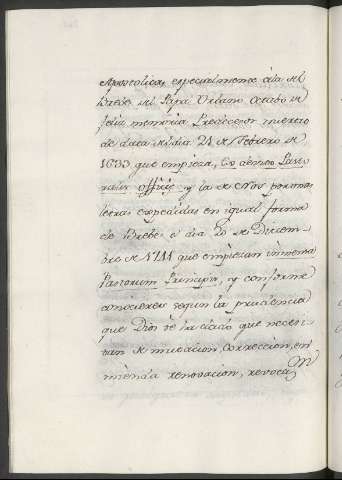 Apostolicas, especialmente à la del
Breve del Papa Urbano Octavo de
feliz memoria Predecesor nuestro
de data del dia 21 de Febrero de
1633 que empieza, Ex debito Pasto
ralis officij y la de otras
letras expedidas en igual forma
de Breve à dia de Diciem
bre de 1711 que empiezan
Pastorum Principis, y conforme
conocieres segun la prudencia
que Dios te ha dado que necesi
tan de mutacion, correccion, en
mienda renovacion, revoca